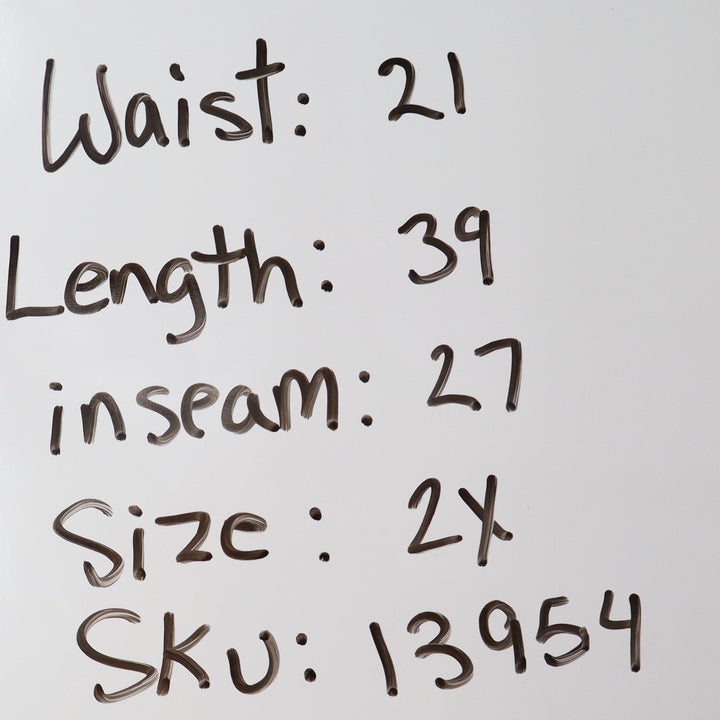 Waist: 21
Length: 39
inseam: 27
Size: 2X
Sku: 13954